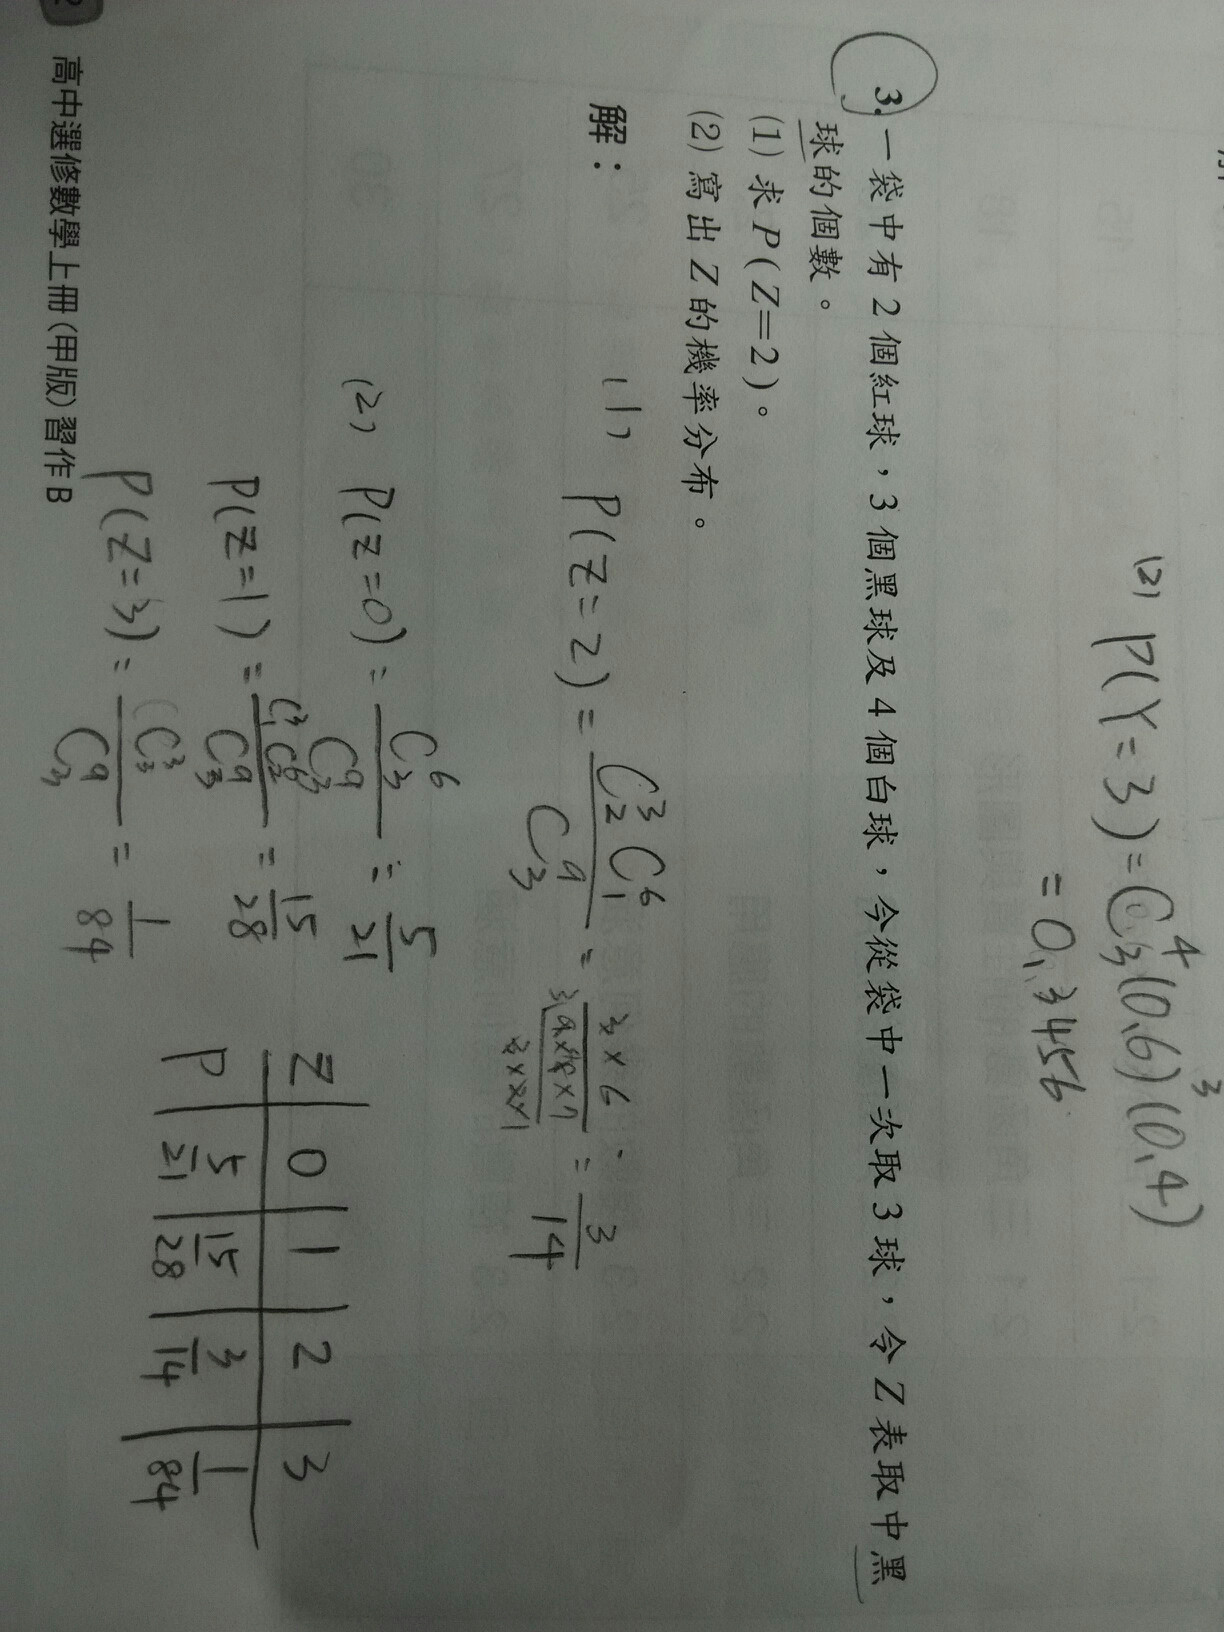 (2) P(Y=3)=C⁴₃(0.6)³(0.4)
=0.3456
3. 一袋中有 2 個紅球，3 個黑球及 4 個白球，今從袋中一次取 3 球，令 Z 表取中黑
球的個數。
(1) 求 P(Z=2)。
(2) 寫出 Z 的機率分布。
解：
(1) P(Z=2)=C³₂C⁶₁/C⁹₃=3×6/(9×8×7/3×2×1)=3/14
(2) P(Z=0)=C⁶₃/C⁹₃=5/21
P(Z=1)=C³₁C⁶₂/C⁹₃=15/28
P(Z=3)=C³₃/C⁹₃=1/84
Z 0 1 2 3
P 5/21 15/28 3/14 1/84
高中選修數學上冊(甲版)習作B